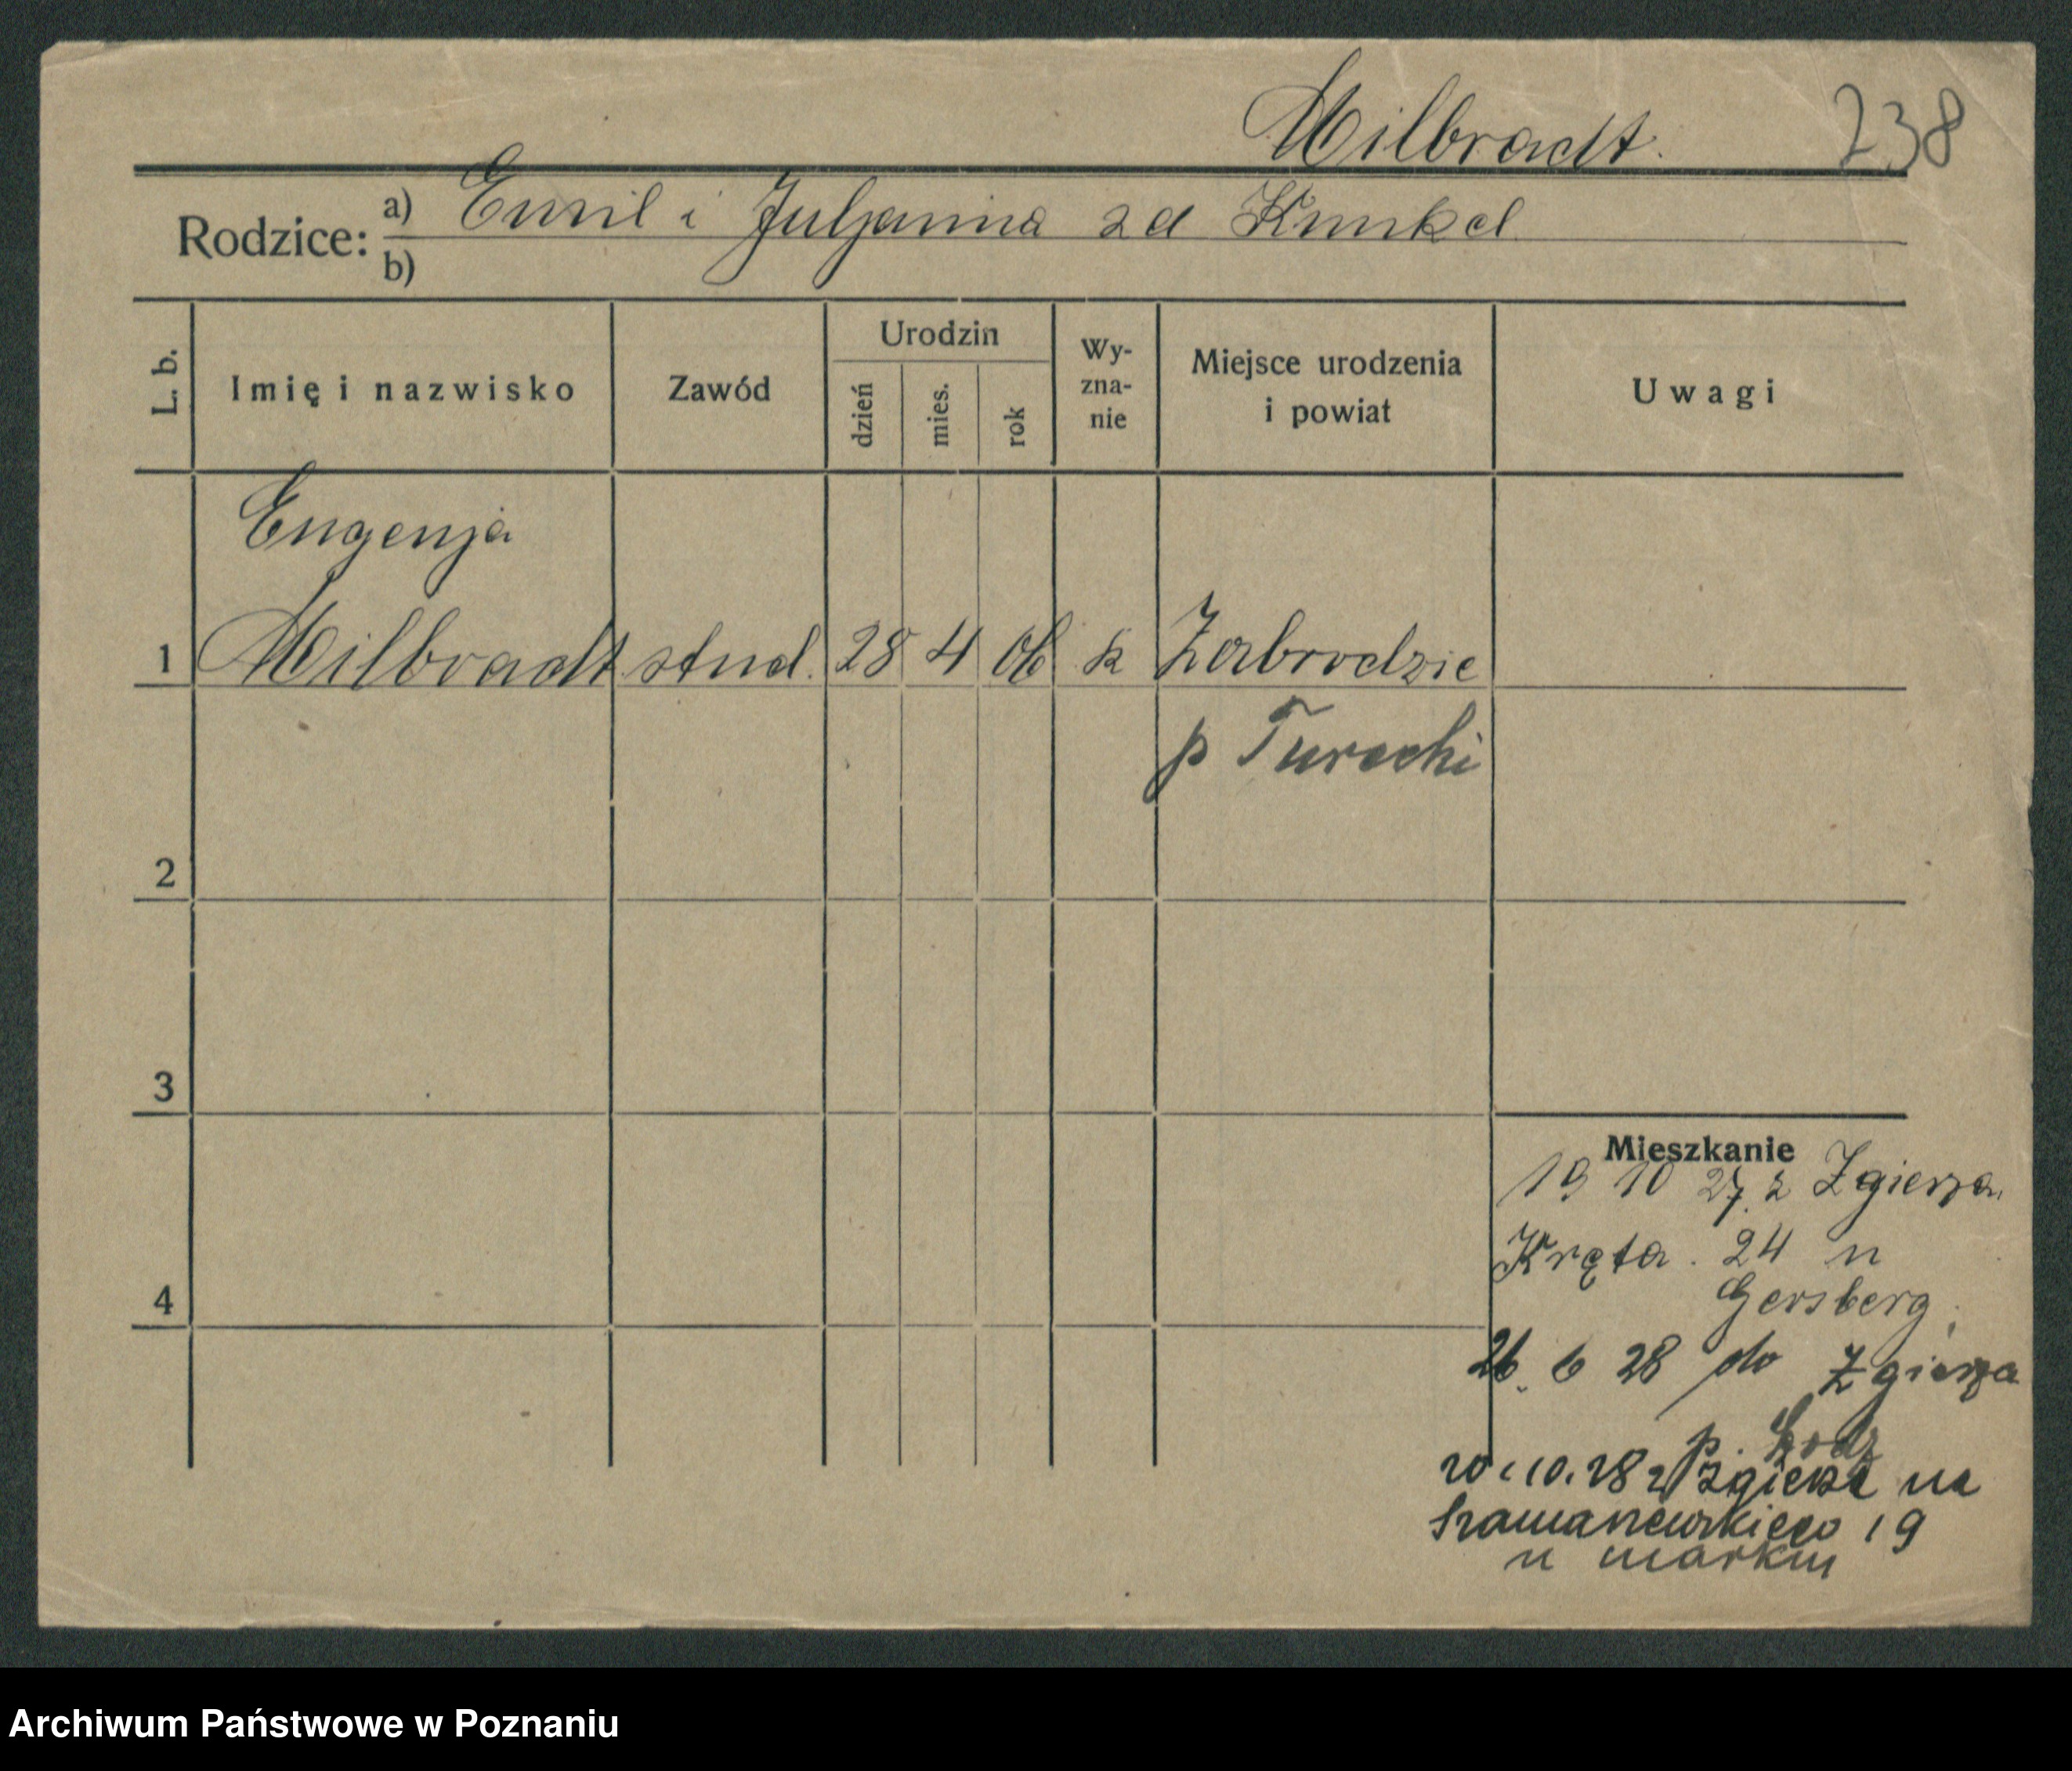 Milbradt. 238
Rodzice: a) Emil i Juljanna zd Kunkel
b)
L. b. Imię i nazwisko Zawód Urodzin dzień mies. rok Wy-zna-nie Miejsce urodzenia i powiat Uwagi
Eugenja
1 Milbradt stud. 28 4 06 k Zabrodzie
p Turecki
2
3
Mieszkanie
19 10 27. z Zgierza.
Kręta. 24 u
4 Gersberg.
26. 6 28 do Zgierza
p. Łodz
20.10.28 z Zgierza na
Szamarzewskiego 19
u
Archiwum Państwowe w Poznaniu